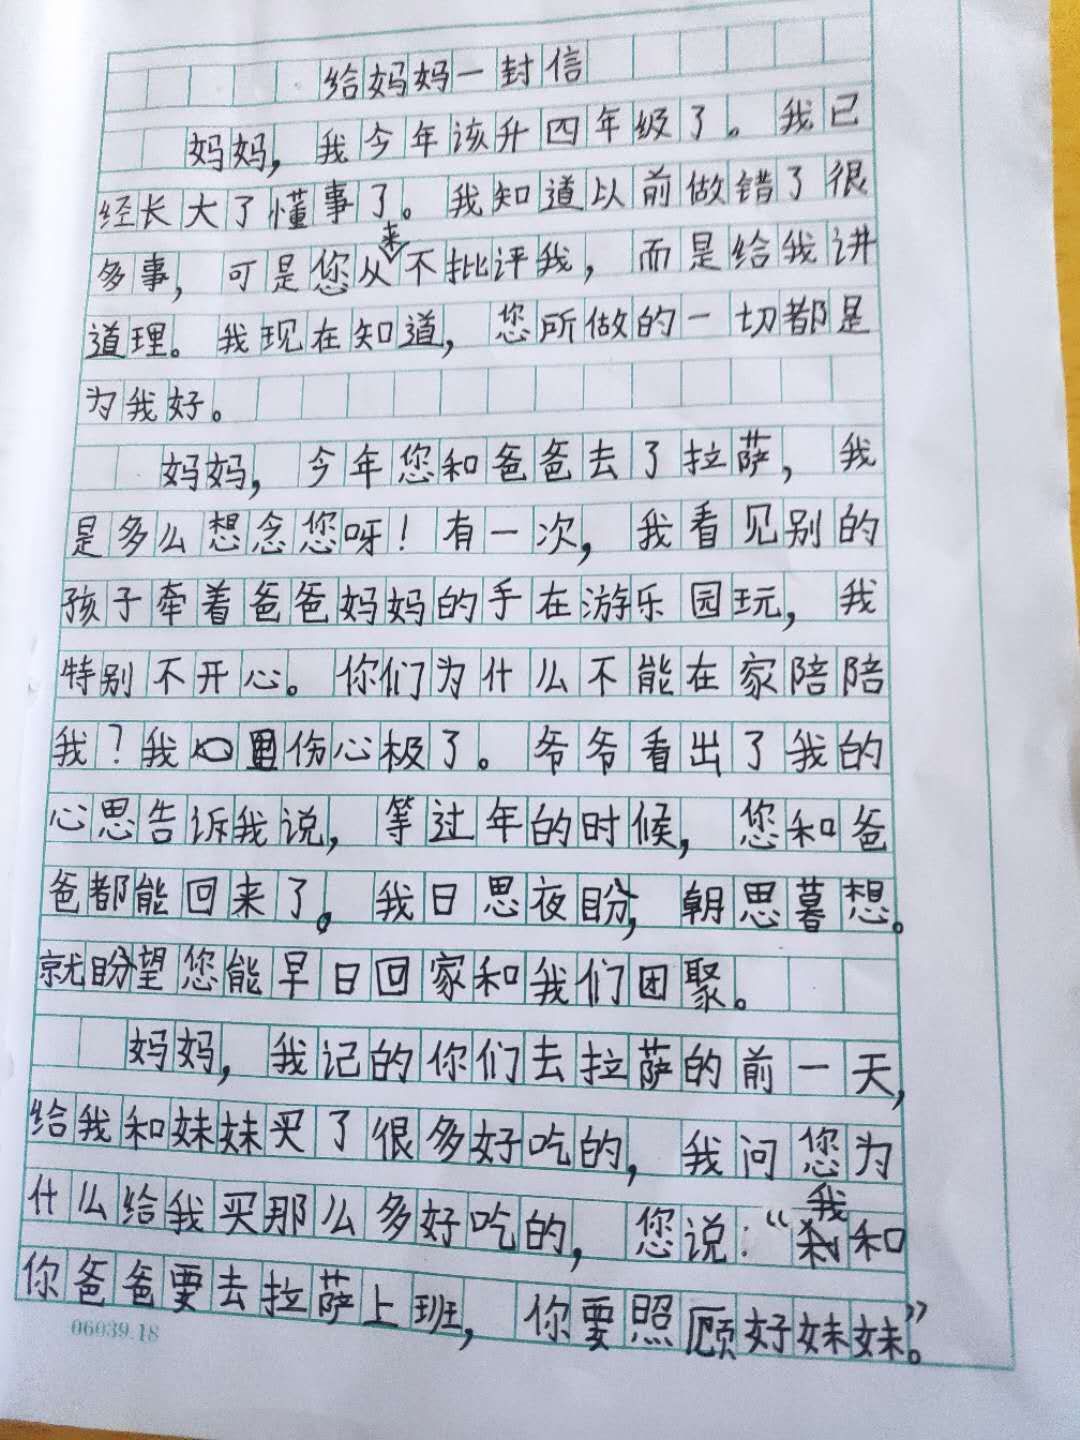 给妈妈一封信
妈妈，我今年该升四年级了。我已
经长大了懂事了。我知道以前做错了很
多事，可是您从来不批评我，而是给我讲
道理。我现在知道，您所做的一切都是
为我好。
妈妈，今年您和爸爸去了拉萨，我
是多么想念您呀！有一次，我看见别的
孩子牵着爸爸妈妈的手在游乐园玩，我
特别不开心。你们为什么不能在家陪陪
我？我心里伤心极了。爷爷看出了我的
心思告诉我说，等过年的时候，您和爸
爸都能回来了。我日思夜盼，朝思暮想。
就盼望您能早日回家和我们团聚。
妈妈，我记的你们去拉萨的前一天，
给我和妹妹买了很多好吃的，我问您为
什么给我买那么多好吃的，您说：“我和
你爸爸要去拉萨上班，你要照顾好妹妹。”
06039.18